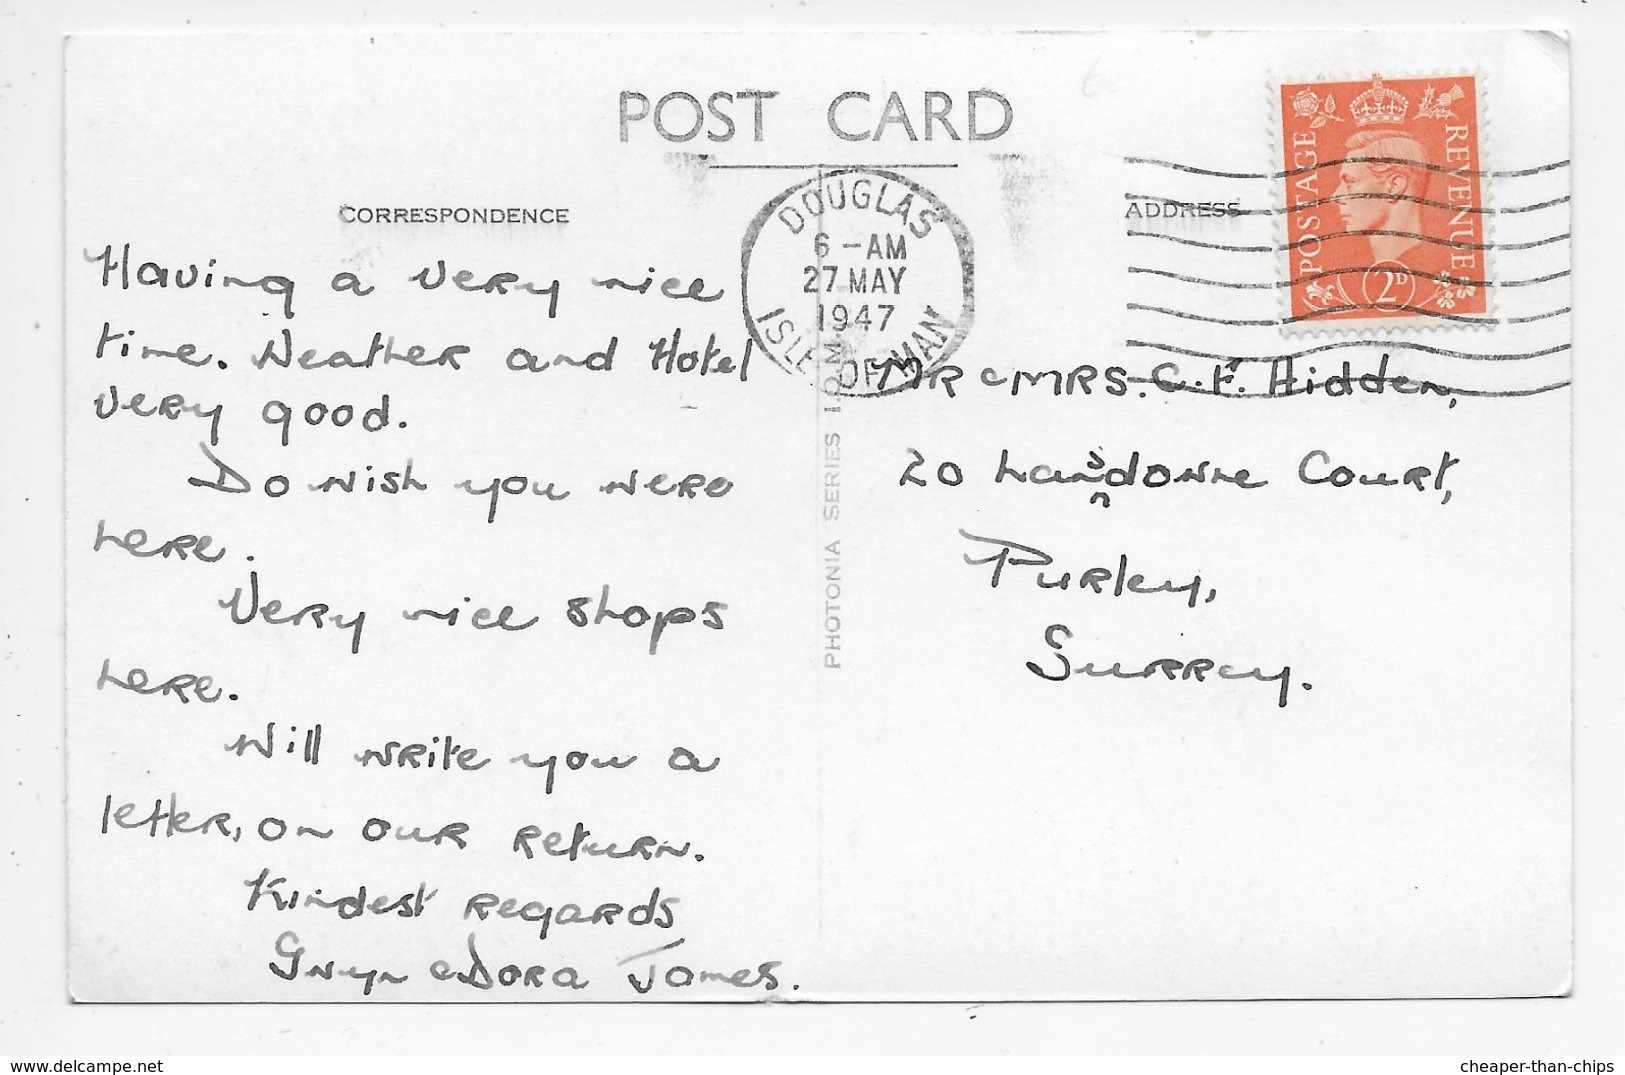 POST CARD
CORRESPONDENCE
ADDRESS
DOUGLAS
6 - AM
27 MAY
1947
ISLE OF MAN
POSTAGE
REVENUE
2D
Having a very nice
time. Weather and Hotel
very good.
Do wish you were
here.
Very nice shops
here.
Will write you a
letter, on our return.
Kindest regards
Gwyn & Dora James.
PHOTONIA SERIES I.O.M.
MR & MRS. C. F. Hidden,
20 Lansdowne Court,
Purley,
Surrey.
cheaper-than-chips